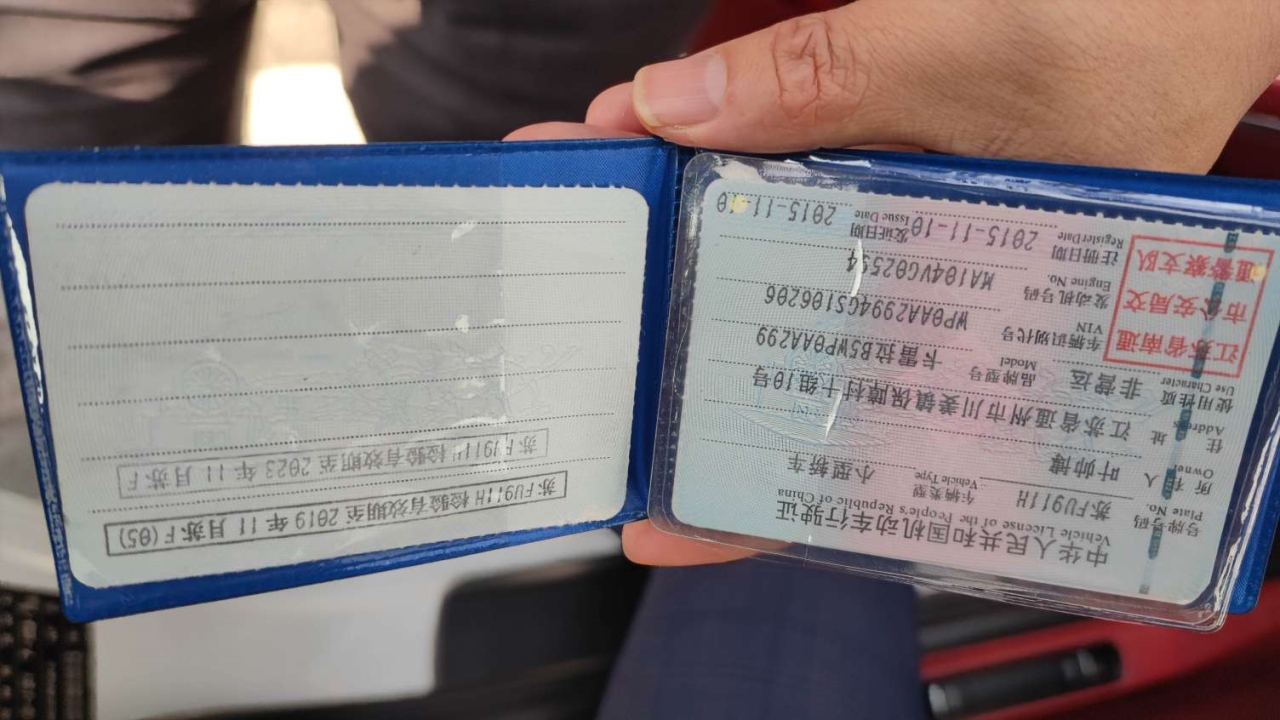 中华人民共和国机动车行驶证
Vehicle License of the People's Republic of China
号牌号码 Plate No. 苏FU911H 车辆类型 Vehicle Type 小型轿车
所有人 Owner 叶帅
住址 Address 江苏省通州市川姜镇保障村十组10号
使用性质 Use Character 非营运 品牌型号 Model 卡雷拉B5WP0AA299
江苏省南通
市公安局交
通警察支队
车辆识别代号 VIN WP0AA2994GS106206
发动机号码 Engine No. MA104VG02594
注册日期 RegisterDate 2015-11-10 发证日期 Issue Date 2015-11-10
苏FU911H 检验有效期至2019年11月苏F(05)
苏FU911H 检验有效期至2023年11月苏F